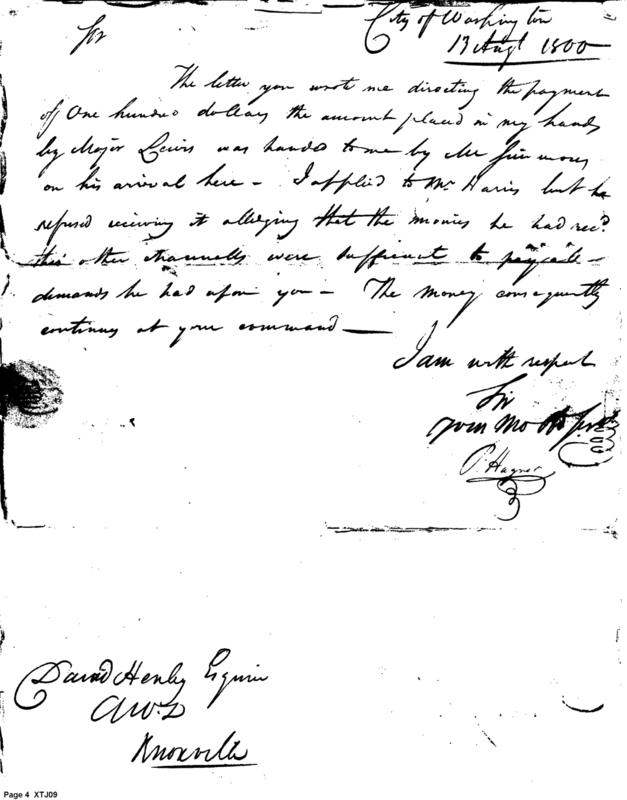 City of Washington
13 Augt 1800
Sir
The letter you wrote me directing the payment
of One hundred dollars the amount placed in my hands
by Major Lewis was handed to me by Mr Simmons
on his arival here – I applied to Mr Harris but he
refused receiving it alleging that the monies he had recd
thro other channells were sufficient to pay all
demands he had upon you – The money consequently
continues at your command –
I am with respect
Sir
your Mo Ob Servt
P. Hagner
David Henley Esquire
AWD
Knoxville
Page 4 XTJ09